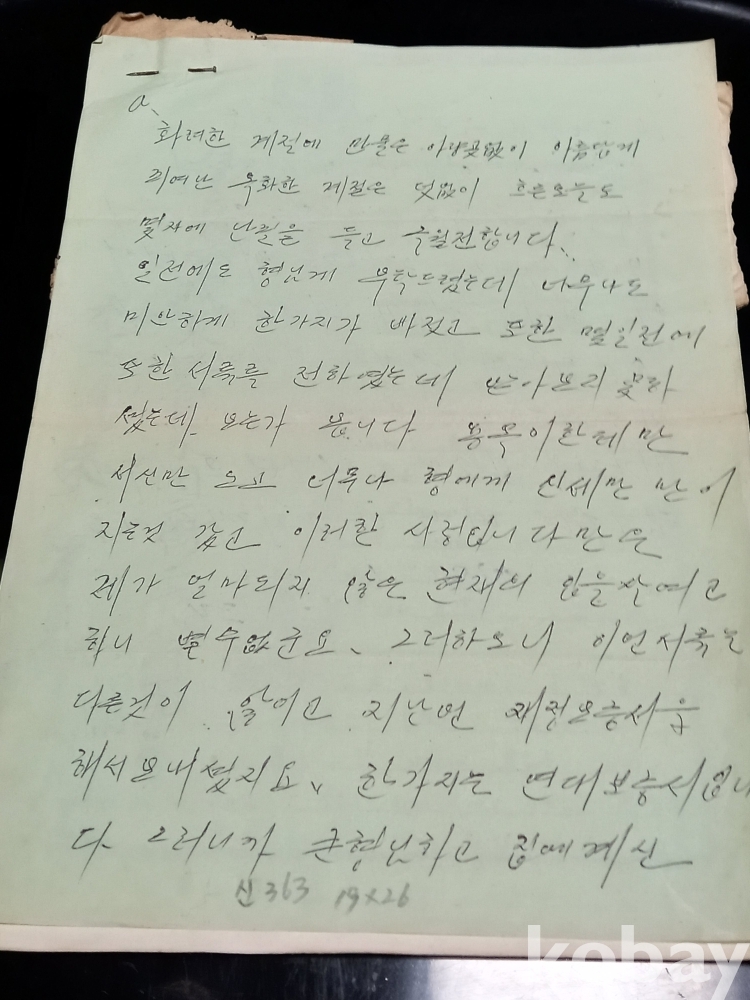 a.
화려한 계절에 만물은 아랑곳없이 아름답게
피여난 옥화한 계절은 덧없이 흐른오늘도
몇자에 난필을 들고 전합니다.
일전에도 형님게 부탁드렸는데 너무나도
미안하게 한가지가 빠젓고 또한 몇일전에
또한 서류를 전하였는데 받아보리
보는가 봅니다 용옥이한테만
서신만 오고 너무나 형에게 신세만 만이
지는것 갔고 이러한 사정입니다만은
제가 얼마되지 않은 현재의
하니 별수없군요. 그러하오니 이번서류는
다른것이 않이고 지난번 재정보증서을
해서보내셨지요, 한가지는 연대보증서입니
다. 그러니가 큰형님하고 집에계신
신363 19x26
kobay